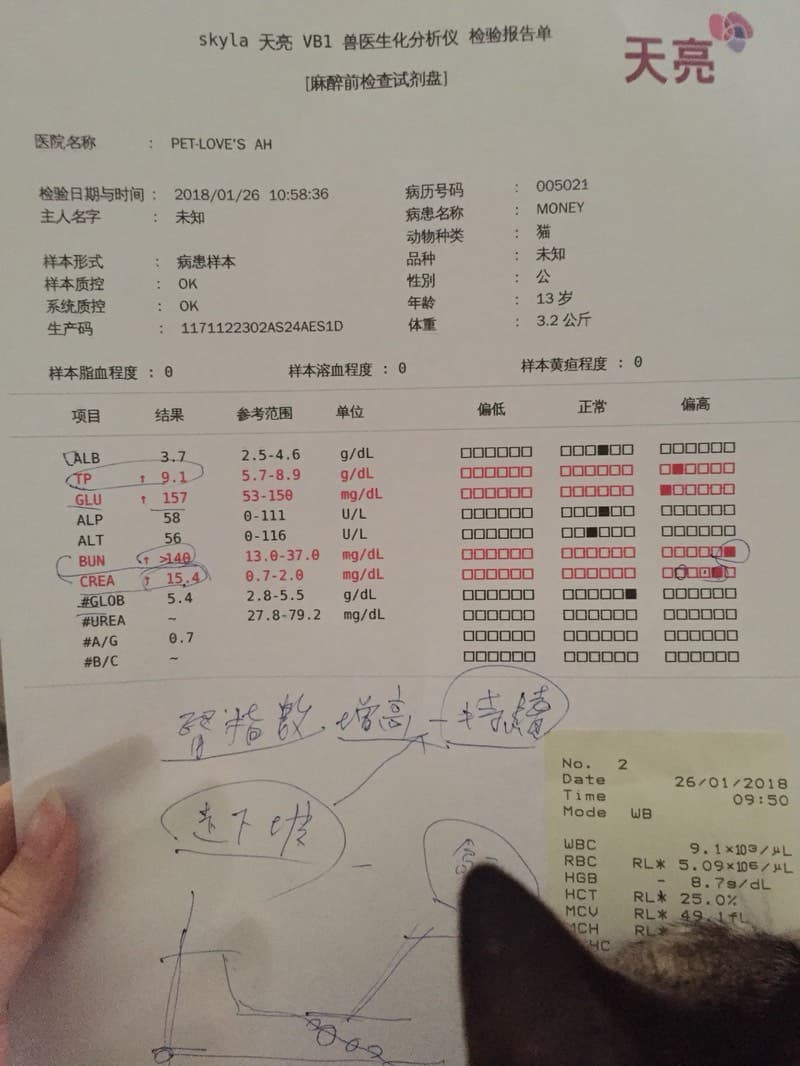 skyla 天亮 VB1 兽医生化分析仪 检验报告单
天亮
[麻醉前检查试剂盘]
医院名称 : PET-LOVE'S AH
检验日期与时间 : 2018/01/26 10:58:36
主人名字 : 未知
病历号码 : 005021
病患名称 : MONEY
动物种类 : 猫
样本形式 : 病患样本
样本质控 : OK
系统质控 : OK
生产码 : 1171122302AS24AES1D
品种 : 未知
性别 : 公
年龄 : 13 岁
体重 : 3.2 公斤
样本脂血程度 : 0 样本溶血程度 : 0 样本黄疸程度 : 0
项目 结果 参考范围 单位 偏低 正常 偏高
ALB 3.7 2.5-4.6 g/dL
TP ↑ 9.1 5.7-8.9 g/dL
GLU ↑ 157 53-150 mg/dL
ALP 58 0-111 U/L
ALT 56 0-116 U/L
BUN ↑ >140 13.0-37.0 mg/dL
CREA ↑ 15.4 0.7-2.0 mg/dL
#GLOB 5.4 2.8-5.5 g/dL
#UREA ~ 27.8-79.2 mg/dL
#A/G 0.7
#B/C ~
腎指數 增高 - 持續
走下坡 -
No. 2
Date 26/01/2018
Time 09:50
Mode WB
WBC 9.1×10³/µL
RBC RL* 5.09×10⁶/µL
HGB - 8.7g/dL
HCT RL* 25.0%
MCV RL* 49.1fL
MCH RL*